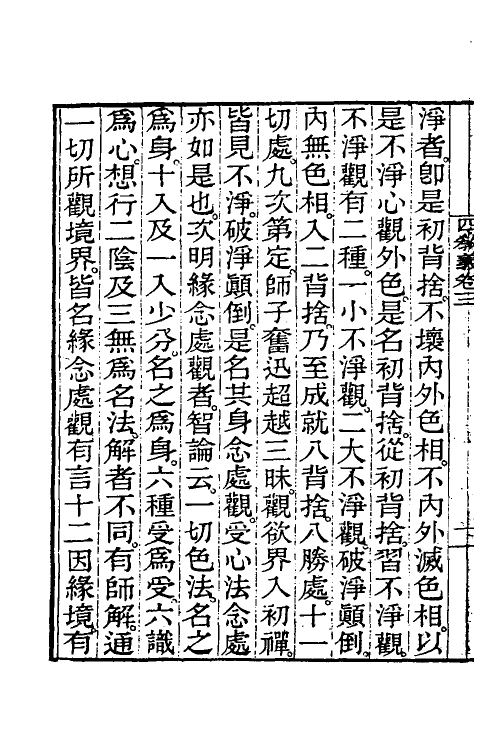 四教義卷三
淨者。卽是初背捨。不壞內外色相。不內外滅色相。以
是不淨心觀外色。是名初背捨。從初背捨。習不淨觀。
不淨觀有二種。一小不淨觀。二大不淨觀。破淨顚倒。
內無色相。入二背捨。乃至成就八背捨。八勝處。十一
切處。九次第定。師子奮迅超越三昧。觀欲界入初禪。
皆見不淨。破淨顚倒。是名其身念處觀。受心法念處
亦如是也。次明緣念處觀者。智論云。一切色法。名之
爲身。十入及一入少分。名之爲身。六種受爲受。六識
爲心。想行二陰及三無爲名法。解者不同。有師解。通
一切所觀境界。皆名緣念處觀有言十二因緣境。有